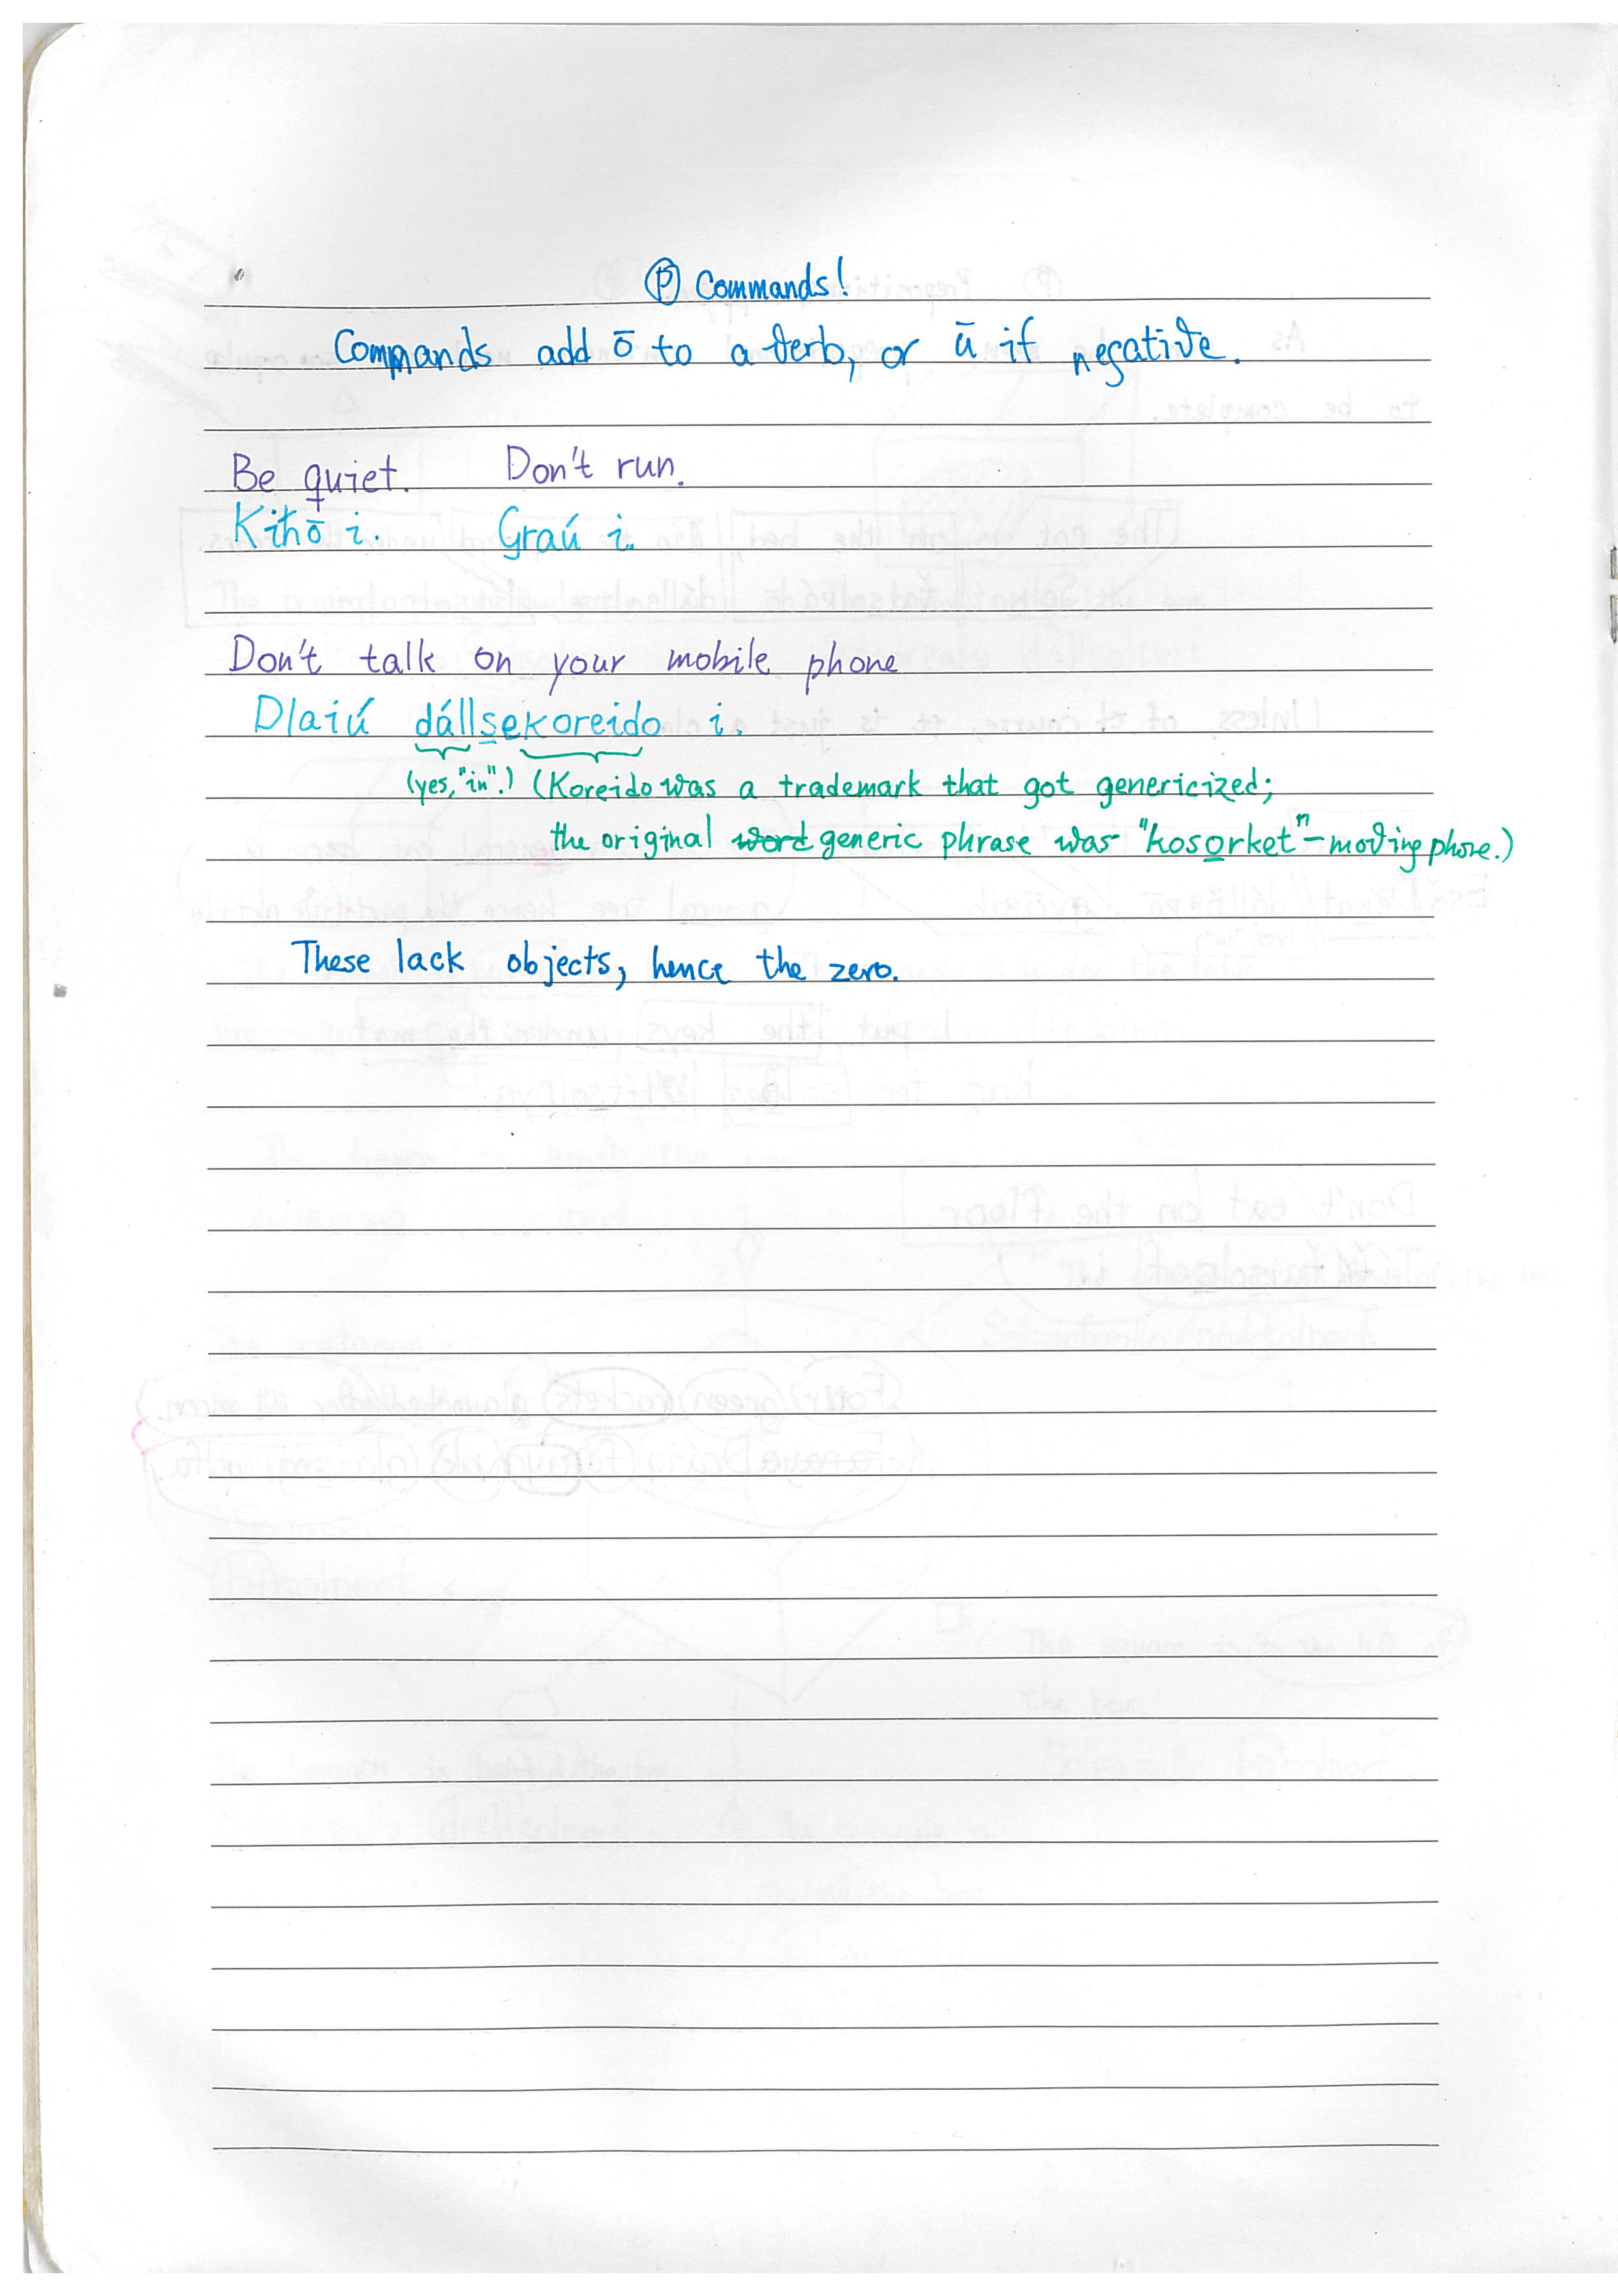 Ⓟ Commands!
Commands add ō to a verb, or ū if negative.
Be quiet. Don't run.
Kihō i. Graú i.
Don't talk on your mobile phone
Dlaiú dállsekoreido i.
(yes, "in".) (Koreido was a trademark that got genericized;
the original word generic phrase was "kosorket" - moving phone.)
These lack objects, hence the zero.